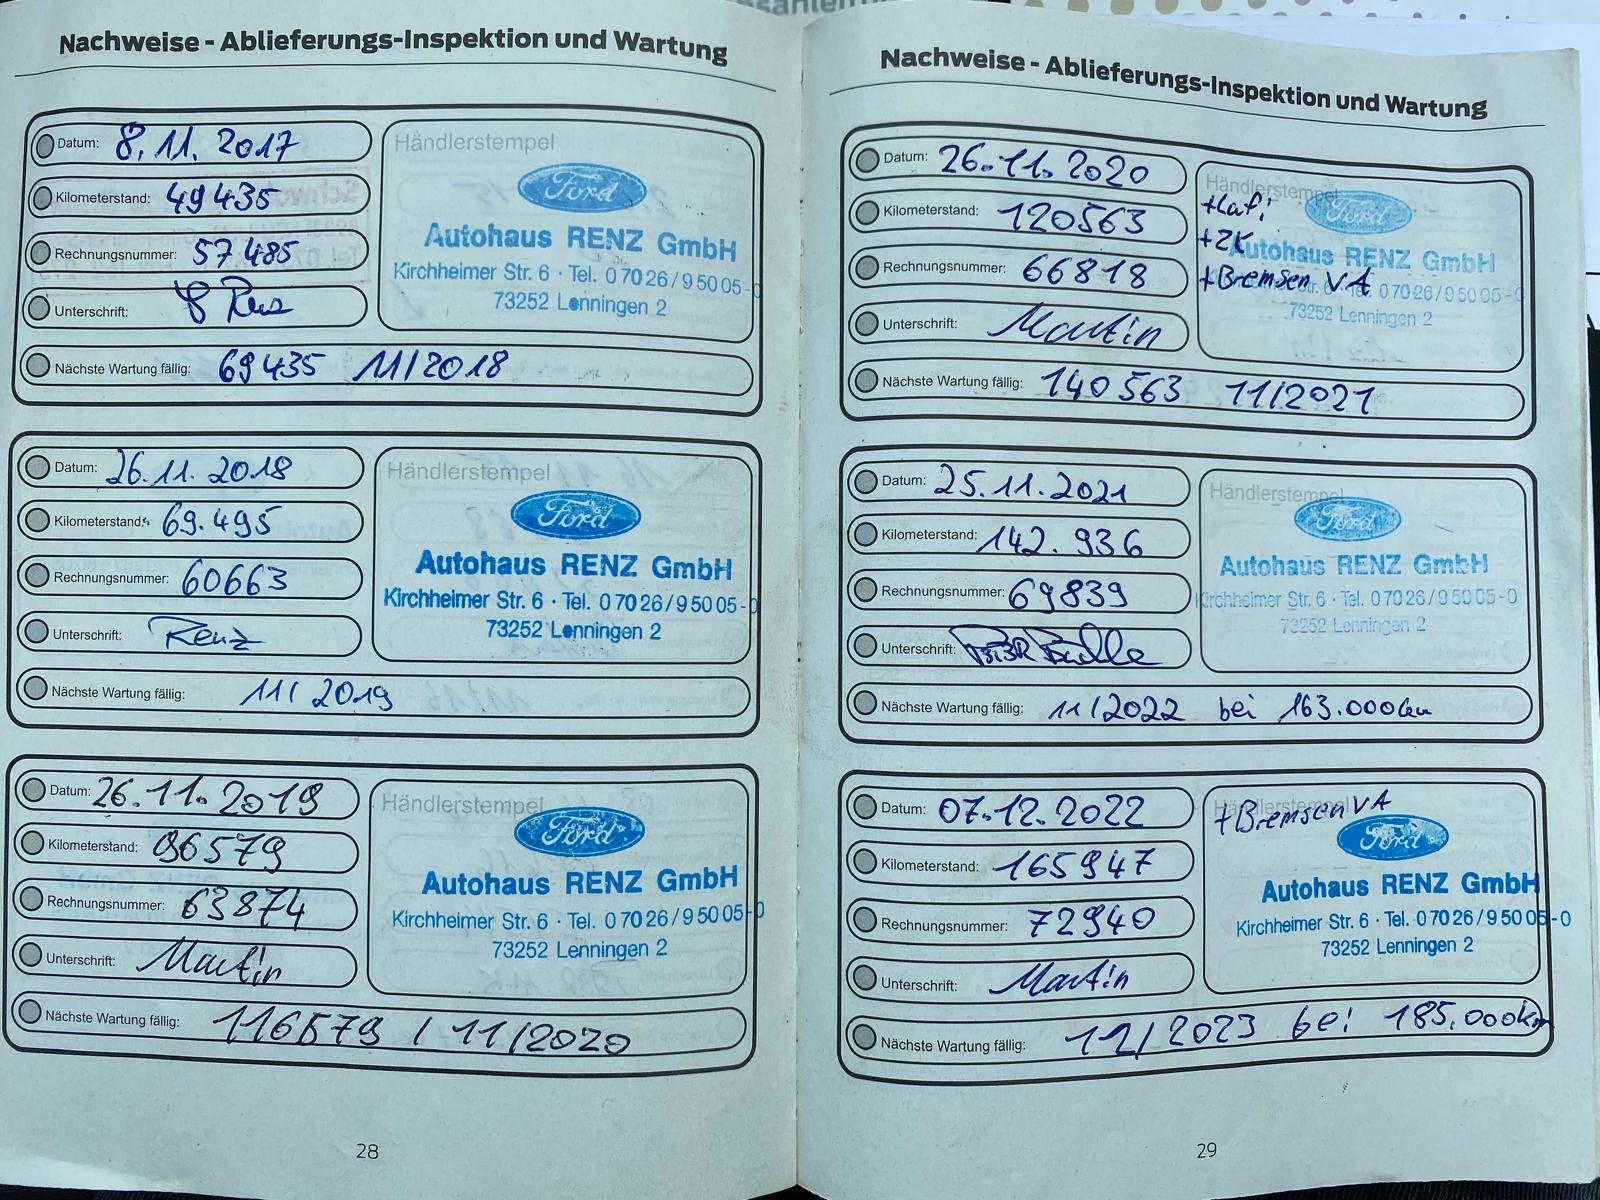 Nachweise - Ablieferungs-Inspektion und Wartung
Datum: 8. 11. 2017
Kilometerstand: 49435
Rechnungsnummer: 57485
Unterschrift:
Nächste Wartung fällig: 69435 11/2018
Händlerstempel
Ford
Autohaus RENZ GmbH
Kirchheimer Str. 6 · Tel. 07026/95005-0
73252 Lenningen 2
Datum: 26.11.2018
Kilometerstand: 69.495
Rechnungsnummer: 60663
Unterschrift: Renz
Nächste Wartung fällig: 11/2019
Händlerstempel
Ford
Autohaus RENZ GmbH
Kirchheimer Str. 6 · Tel. 07026/95005-0
73252 Lenningen 2
Datum: 26.11.2019
Kilometerstand: 96579
Rechnungsnummer: 63874
Unterschrift: Martin
Nächste Wartung fällig: 116579 / 11/2020
Händlerstempel
Ford
Autohaus RENZ GmbH
Kirchheimer Str. 6 · Tel. 07026/95005-0
73252 Lenningen 2
28
Nachweise - Ablieferungs-Inspektion und Wartung
Datum: 26.11.2020
Kilometerstand: 120563
Rechnungsnummer: 66818
Unterschrift: Martin
Nächste Wartung fällig: 140563 11/2021
Händlerstempel
+ZK
+Bremsen VA
Ford
Autohaus RENZ GmbH
Kirchheimer Str. 6 · Tel. 07026/95005-0
73252 Lenningen 2
Datum: 25.11.2021
Kilometerstand: 142.936
Rechnungsnummer: 69839
Unterschrift:
Nächste Wartung fällig: 11/2022 bei 163.000km
Händlerstempel
Ford
Autohaus RENZ GmbH
Kirchheimer Str. 6 · Tel. 07026/95005-0
73252 Lenningen 2
Datum: 07.12.2022
Kilometerstand: 165947
Rechnungsnummer: 72940
Unterschrift: Martin
Nächste Wartung fällig: 12/2023 bei 185.000km
Händlerstempel
+BremsenVA
Ford
Autohaus RENZ GmbH
Kirchheimer Str. 6 · Tel. 07026/95005-0
73252 Lenningen 2
29